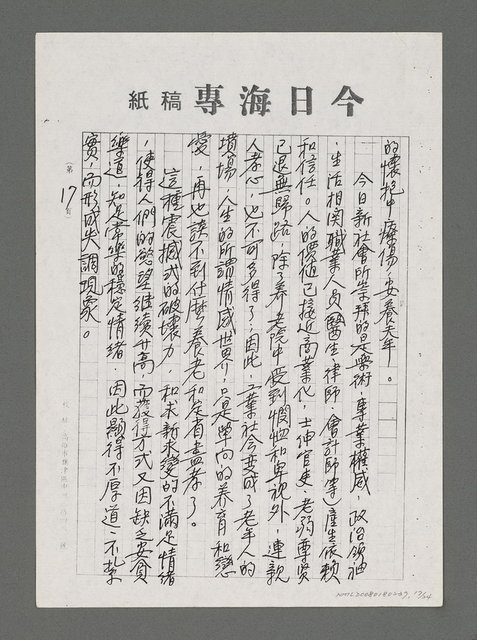 今日海專 稿紙
的懷抱中療傷，安養天年。
今日新社會所崇拜的是學術，專業權威，政治領袖
，生活相關職業人員（醫生、律師、會計師等）產生依賴
和信任。人的價值已接近商業化，士紳官吏，老弱尊賢
已退無歸路，除了養老院中受到憫恤和卑視外，連親
人孝心，也不可多得了，因此，工業社會變成了老年人的
墳場，人生的所謂情感世界，只是單向的養育和戀
愛，再也談不到什麼養老和晨昏盡孝了。
這種震撼式的破壞力，和求新求變的不滿足情緒
，使得人們的慾望繼續升高，而獲得方式又因缺乏安貧
樂道，知足常樂的穩定情緒，因此顯得不厚道，不紮
實，而形成失調現象。
（第 17 頁）
NMTL20080180207, 17/24